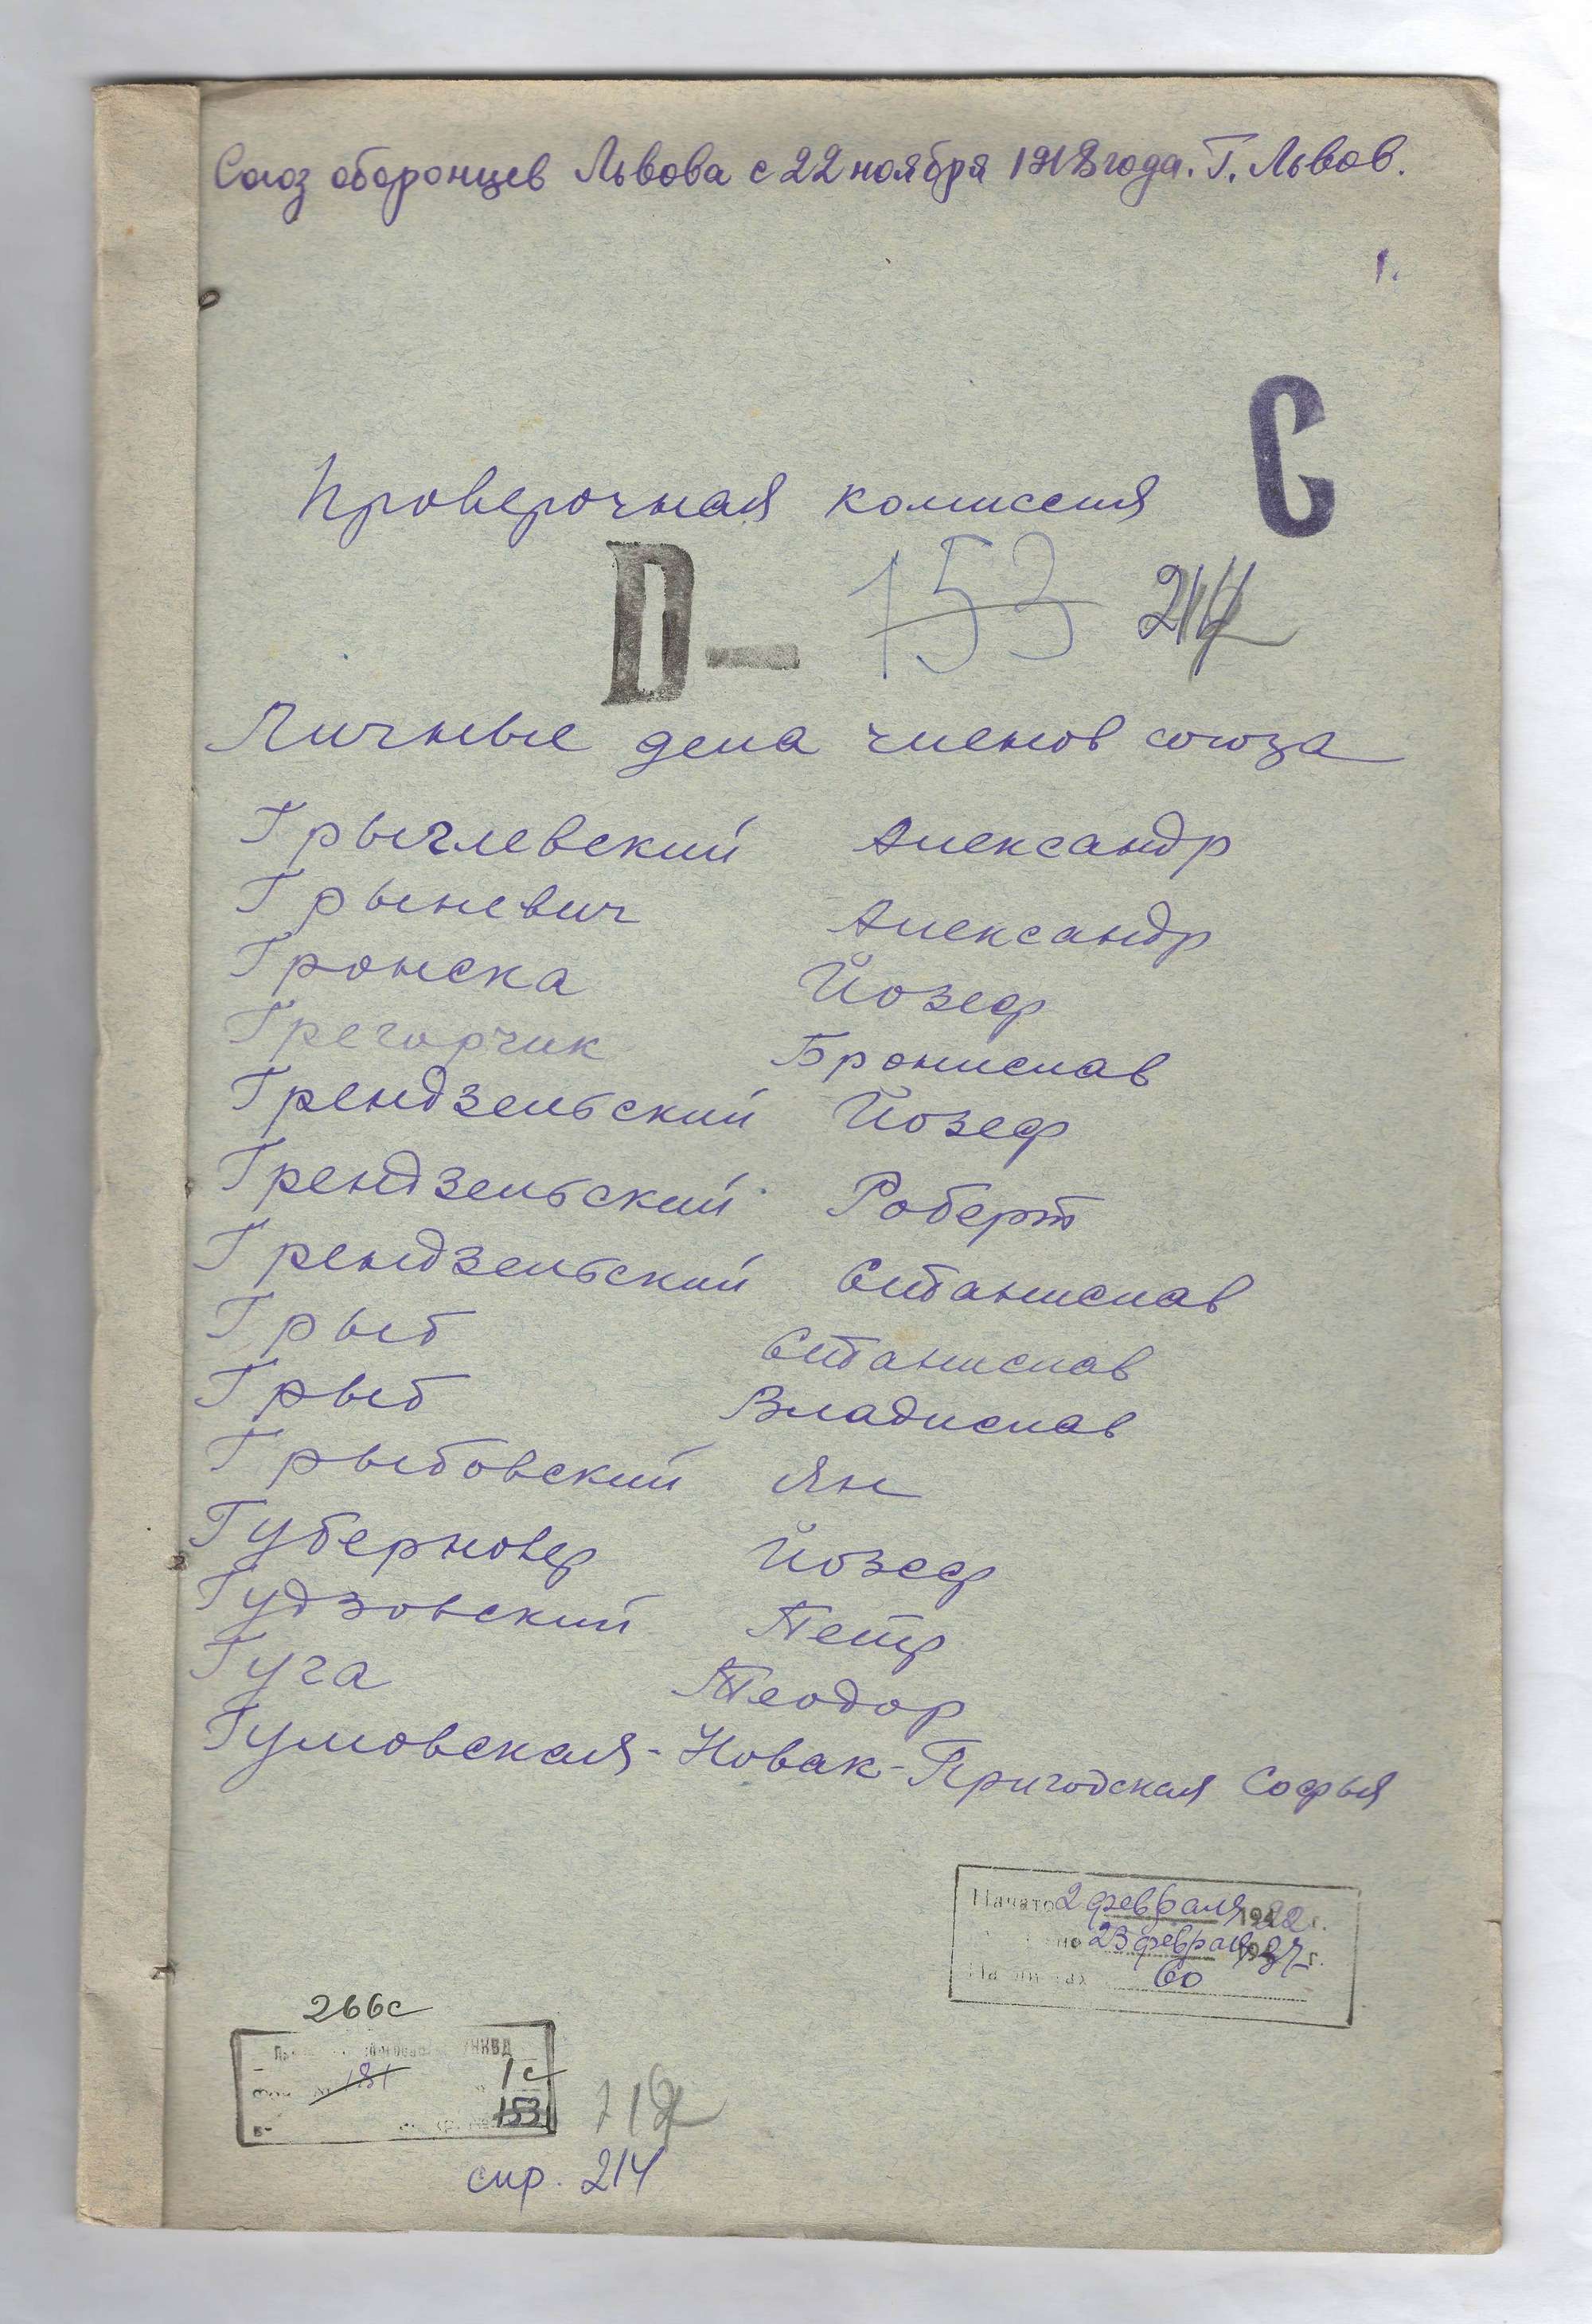 Союз оборонцев Львова с 22 ноября 1918 года. Г. Львов.
1.
С
Проверочная комиссия
D— 153 214
Личные дела членов союза
Грычлевский Александр
Грыневич Александр
Гронска Йозеф
Грегорчик Бронислав
Грендзельский Йозеф
Грендзельский Роберт
Грендзельский Станислав
Грыб Станислав
Грыб Владислав
Грыбовский Ян
Губерновер Йозеф
Гудзовский Петр
Гуга Теодор
Гумовская-Новак-Пригодская Софья
Начато 2 февраля 1922 г.
23 февраля 1937 г.
60
266с
НКВД
181 1с
153
спр. 214